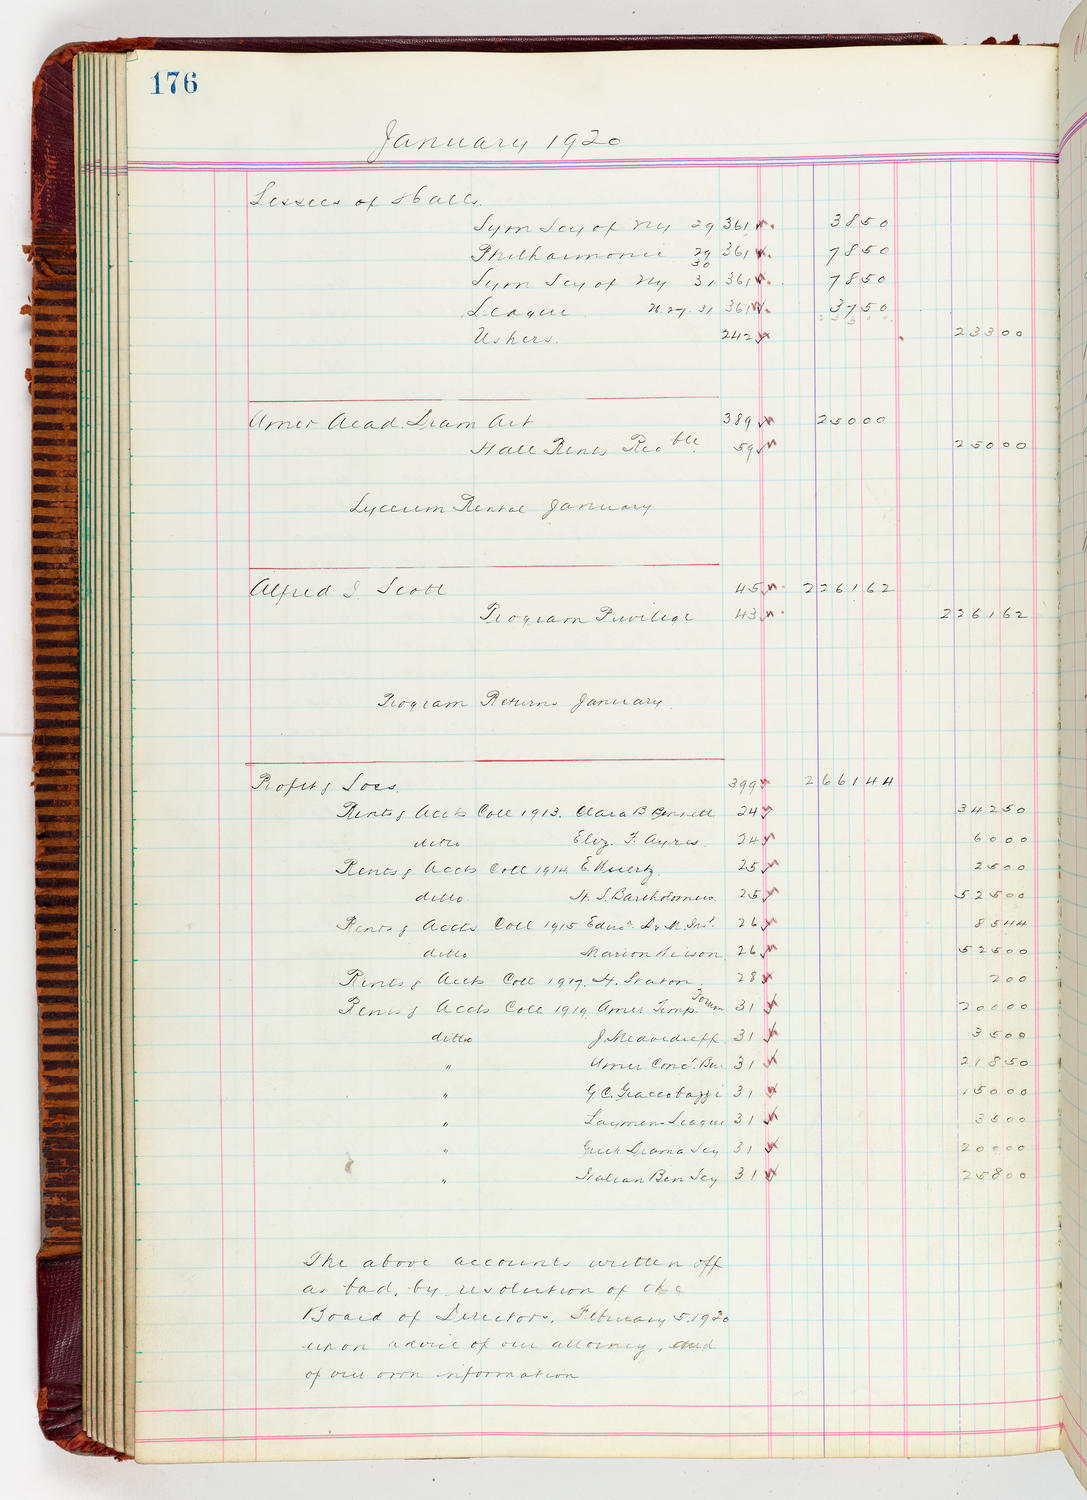 176
January 1920
Lessees of Halls.
Sym Scy of Ny 29 361 38 50
Philharmonic 29 30 361 78 50
Sym Scy of Ny 31 361 78 50
League 27 31 361 37 50
Ushers. 242 233 00
Amer Acad Dram Art 389 250 00
Hall Rents Rec ble 59 250 00
Lyceum Rental January
Alfred I. Scott 45 2261 62
Program Privilege 43 2261 62
Program Returns January.
Profit & Loss. 399 2661 44
Rents & Accts Coll 1913. Clara B Bennett 24 342 50
ditto Eliz. F. Ayres. 24 60 00
Rents & Accts Coll 1914 E. Kuertz. 25 25 00
ditto St. S. Bartholomews 25 525 00
Rents & Accts Coll 1915 Educ. 26 85 44
ditto Marion Wilson 26 525 00
Rents & Accts Coll 1917. H. Staton. 28 2 00
Rents & Accts Coll 1919. Amer Temp. Forum 31 200 00
ditto J. Medvedieff 31 35 00
" Amer Conc. Bu 31 218 50
" G. C. Giaccobazzi 31 150 00
" Laymens League 31 35 00
" Greek Drama Scy 31 200 00
" Italian Ben Scy 31 258 00
The above accounts written off
as bad, by resolution of the
Board of Directors, February 5, 1920
upon advice of our attorney, and
of our own information